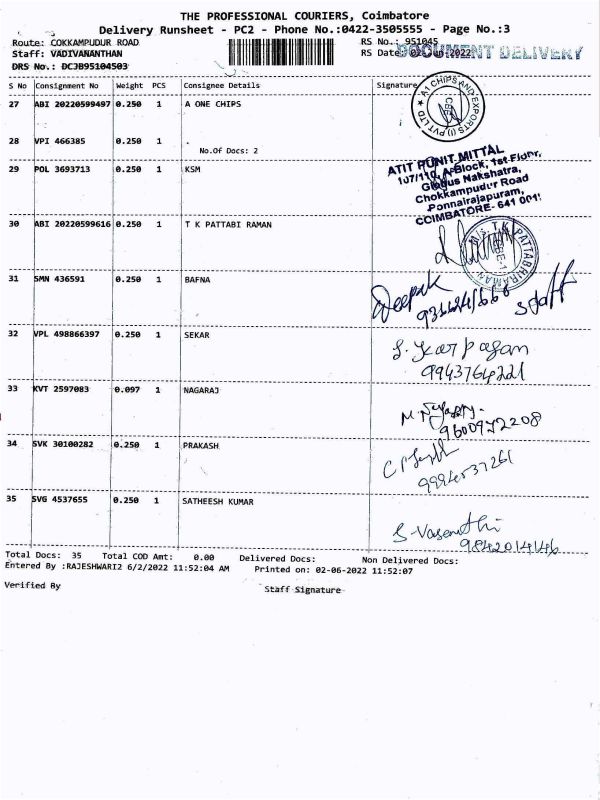 THE PROFESSIONAL COURIERS, Coimbatore
Delivery Runsheet - PC2 - Phone No.:0422-3505555 - Page No.:3
Route: COKKAMPUDUR ROAD RS No.: 951045
Staff: VADIVANANTHAN RS Date: 02-Jun-2022 DOCUMENT DELIVERY
DRS No.: DCJB95104503
S No Consignment No Weight PCS Consignee Details Signature
27 ABI 20220599497 0.250 1 A ONE CHIPS
A1 CHIPS AND EXPORTS (I) PVT LTD
CBE
28 VPI 466385 0.250 1 .
No.Of Docs: 2
29 POL 3693713 0.250 1 KSM
ATIT PUNIT MITTAL
107/110, A-Block, 1st Floor,
Globus Nakshatra,
Chokkampudur Road
Ponnairajapuram,
COIMBATORE- 641 001.
30 ABI 20220599616 0.250 1 T K PATTABI RAMAN
M/s. T.K. PATTABHIRAMAN
CBE-1
31 SMN 436591 0.250 1 BAFNA
Deepak
staff
32 VPL 498866397 0.250 1 SEKAR
S. Karpagam
9943764221
33 KVT 2597083 0.097 1 NAGARAJ
9600972208
34 SVK 30100282 0.250 1 PRAKASH
9994537261
35 SVG 4537655 0.250 1 SATHEESH KUMAR
S-Vasanthi
9842014146
Total Docs: 35 Total COD Amt: 0.00 Delivered Docs: Non Delivered Docs:
Entered By :RAJESHWARI2 6/2/2022 11:52:04 AM Printed on: 02-06-2022 11:52:07
Verified By Staff Signature